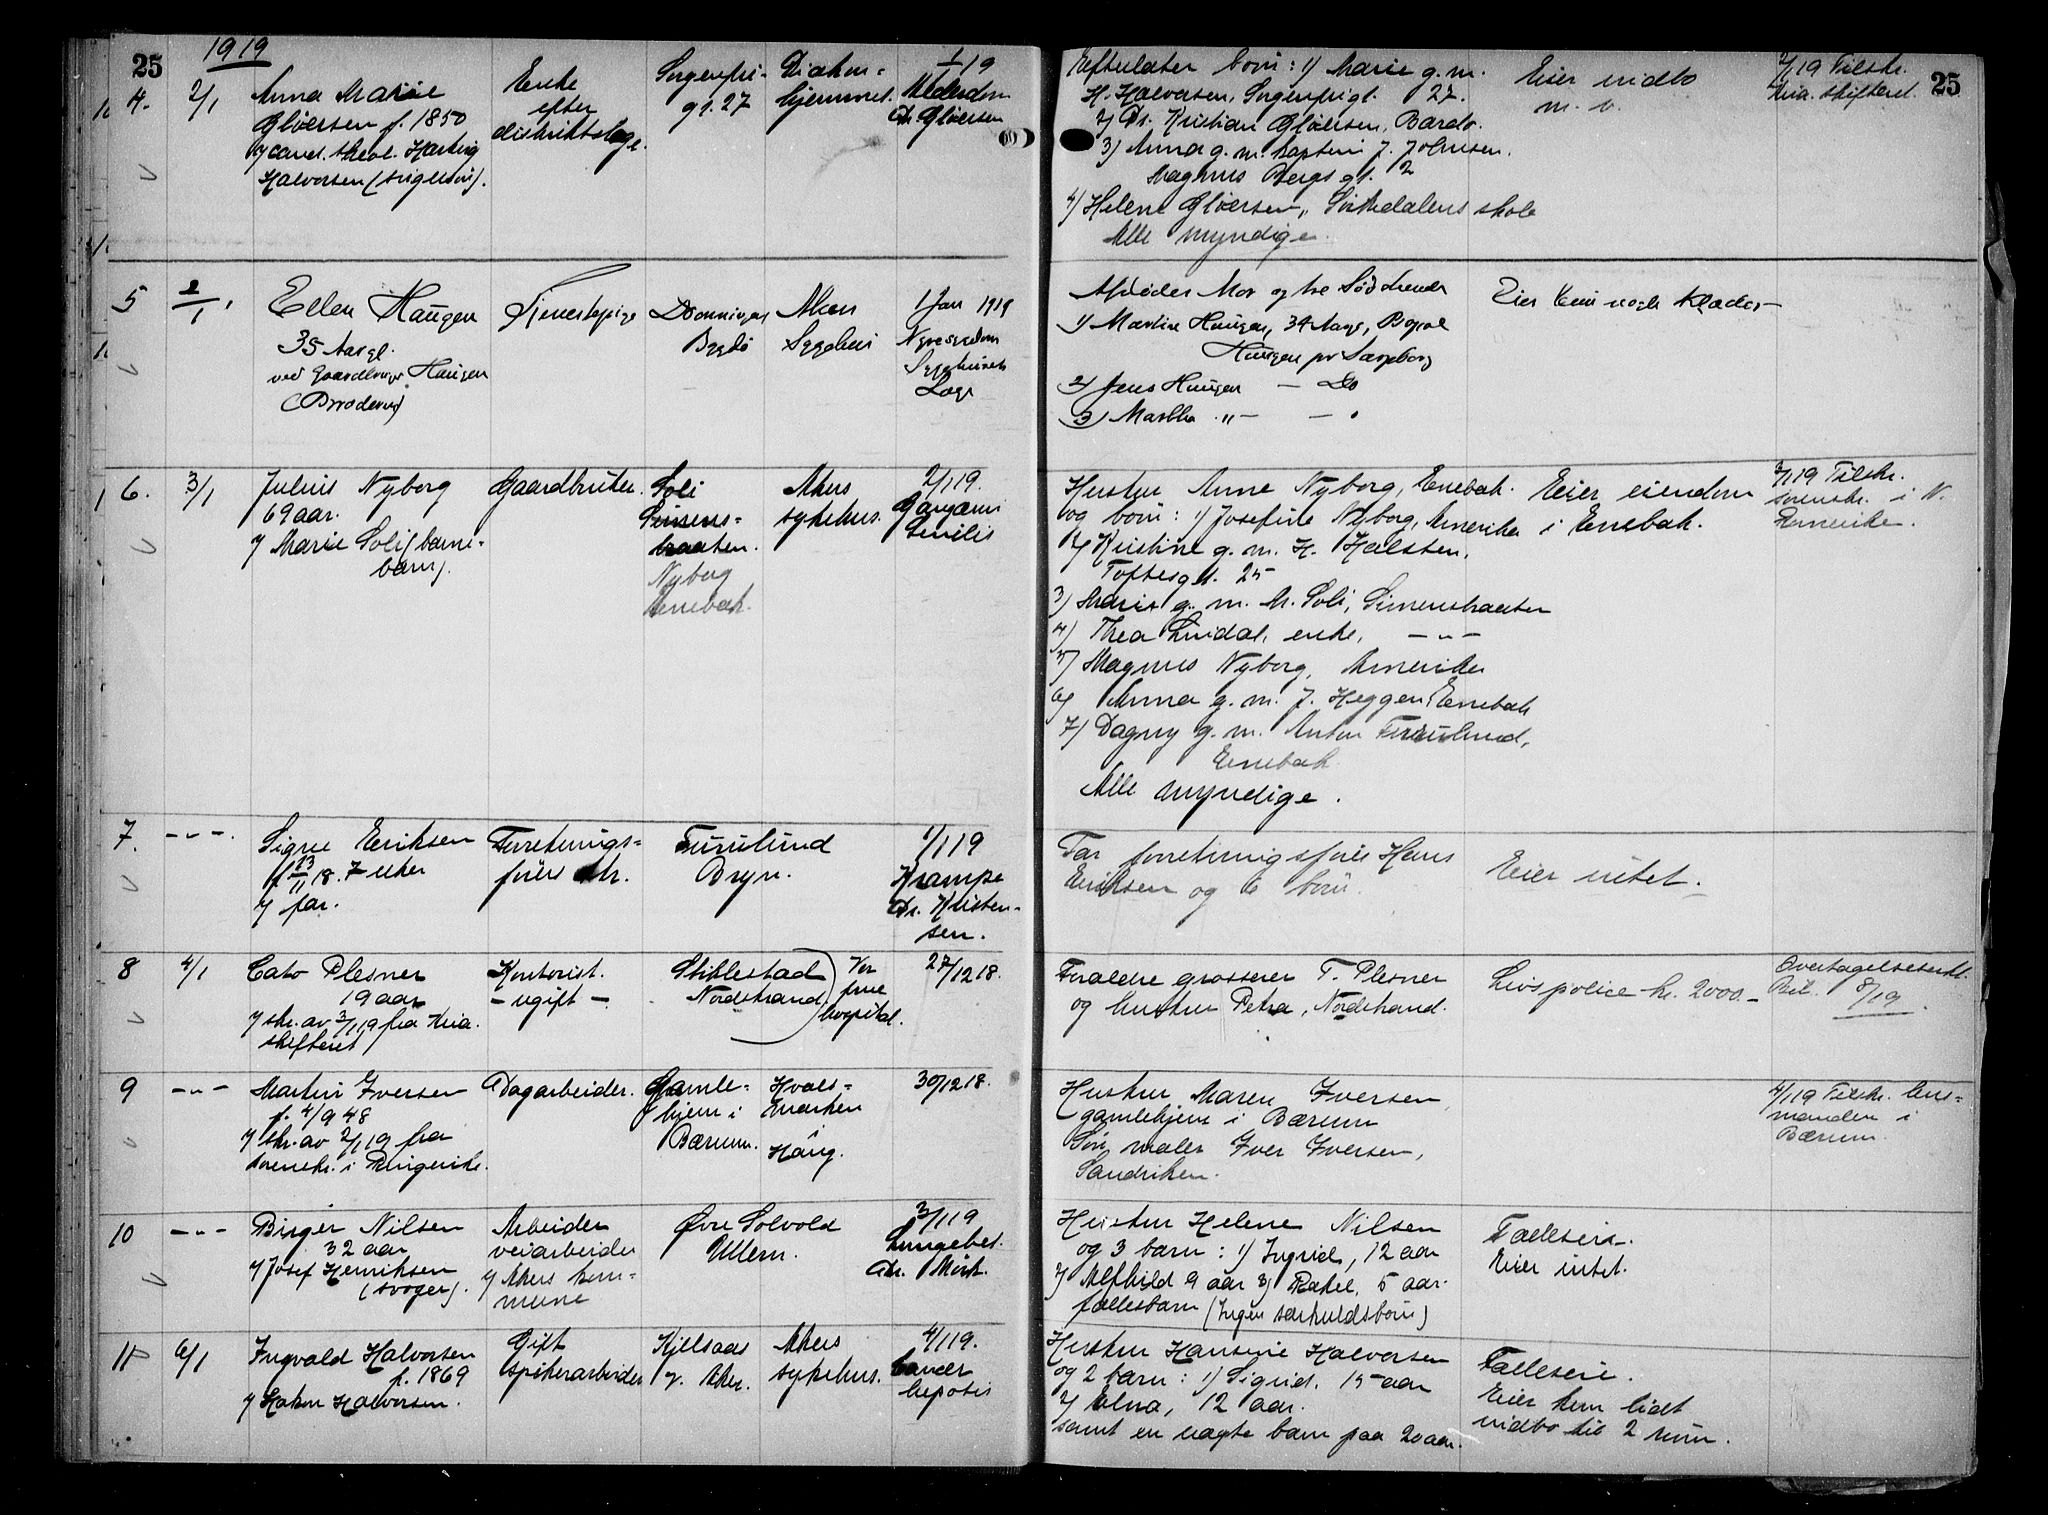 25
1919
4. 2/1
Anna Marie
Gløersen f. 1850
v/ cand. theol. Hartvig
Halvorsen (svigersøn).
Enke
efter
distriktslæge.
Sorgenfri-
gt. 27
Diakon-
hjemmet.
1/1 19
Alderdom
Dr. Gløersen
Efterlater børn: 1) Marie g. m.
H. Halvorsen, Sorgenfrigt. 27.
2) Dr. Kristian Gløersen, Bardo.
3) Anna g. m. kaptein J. Johnsen,
Magnus Bergs gt. 2
4) Helene Gløersen, Sørkedalens skole
Alle myndige.
Eier indbo
m. v.
2/1 19 Tilskr.
Kria. skifteret.
25
5 2/1
Ellen Haugen
35 Aar gl.
ved Gaardbruger Haugen
(Broder)
Tjenestepige
Bygdø
Akers
Sygehus
1 Jan 1919
Nyresygdom
Sygehusets
Læge
Afdødes Mor og tre Sødskende
1) Martine Haugen, 34 Aar, Bopæl
Haugen pr Sarpsborg
2) Jens Haugen — Do
3) Martha -"- — "
Eier kun nogle Klæder
6. 3/1
Julius Nyborg
69 aar.
v/ Marie Soli (barne-
barn).
Gaardbruker.
Soli
Simens-
braaten.
Nyborg
Enebak.
Akers
sykehus.
2/1 19.
Gangræn
senilis
Hustru Anne Nyborg, Enebak.
og børn: 1) Josefine Nyborg, Amerika
2) Kristine g. m. H. Halsten,
Toftesgt. 25
3) Marie g. m. M. Soli, Simensbraaten
4) Thea Lindal, enke, — " —
5) Magnus Nyborg, Amerika
6) Anna g. m. J. Heggen, Enebak
7) Dagny g. m. Anton Furulund,
Enebak
Alle myndige.
Eier eiendom
i Enebak.
3/1 19 Tilskr.
sorenskr. i N.
Romerike.
7. — " —.
Signe Eriksen
f. 13/11 18. 7 uker
v/ far.
Forretnings-
fører dtr.
Furulund
Bryn.
1/1 19
Krampe
Dr. Kristen-
sen.
Far forretningsfører Hans
Eriksen og 6 børn.
Eier intet.
8 4/1
Cato Plesner
19 aar
v/ skr. av 3/1 19 fra Kria.
skifteret
Kontorist.
— ugift —
Stiklestad
Nordstrand.
Vor
frue
hospital.
27/12 18.
Forældre grosserer T. Plesner
og hustru Petra, Nordstrand.
Livspolice kr. 2000.—
Overtagelseserkl.
Bil. 8/19
9 — " —
Martin Iversen
f. 4/9 48
v/ skr. av 2/1 19 fra
sorenskr. i Ringerike.
Dagarbeider.
Gamle-
hjem i
Bærum.
Hvals-
marken
30/12 18.
Hustru Maren Iversen,
gamlehjem i Bærum
Søn maler Iver Iversen,
Sandviken.
4/1 19 Tilskr. lens-
manden i
Bærum.
10 — " —
Birger Nilsen
32 aar
v/ Josef Henriksen
(svoger).
Arbeider
veiarbeider
v/ Akers kom-
mune
Øvre Solvold
Ullern.
3/1 19
Lungebet.
Dr. Mørk.
Hustru Helene Nilsen
og 3 barn: 1) Ingrid, 12 aar
2) Alfhild 9 aar 3) Rakel, 5 aar.
fællesbarn (Ingen særkuldsbørn)
Fælleseie.
Eier intet.
11 6/1
Ingvald Halvorsen
f. 1869
v/ Hakon Halvorsen.
Gift
spikerarbeider
Kjelsaas
v. Aker.
Akers
sykehus.
4/1 19.
Cancer
hepatis
Hustru Hansine Halvorsen
og 2 barn: 1) Sigrid, 15 aar
2) Elna, 12 aar.
samt en uægte barn paa 20 aar.
Fælleseie.
Eier kun lidt
indbo til 2 rum.